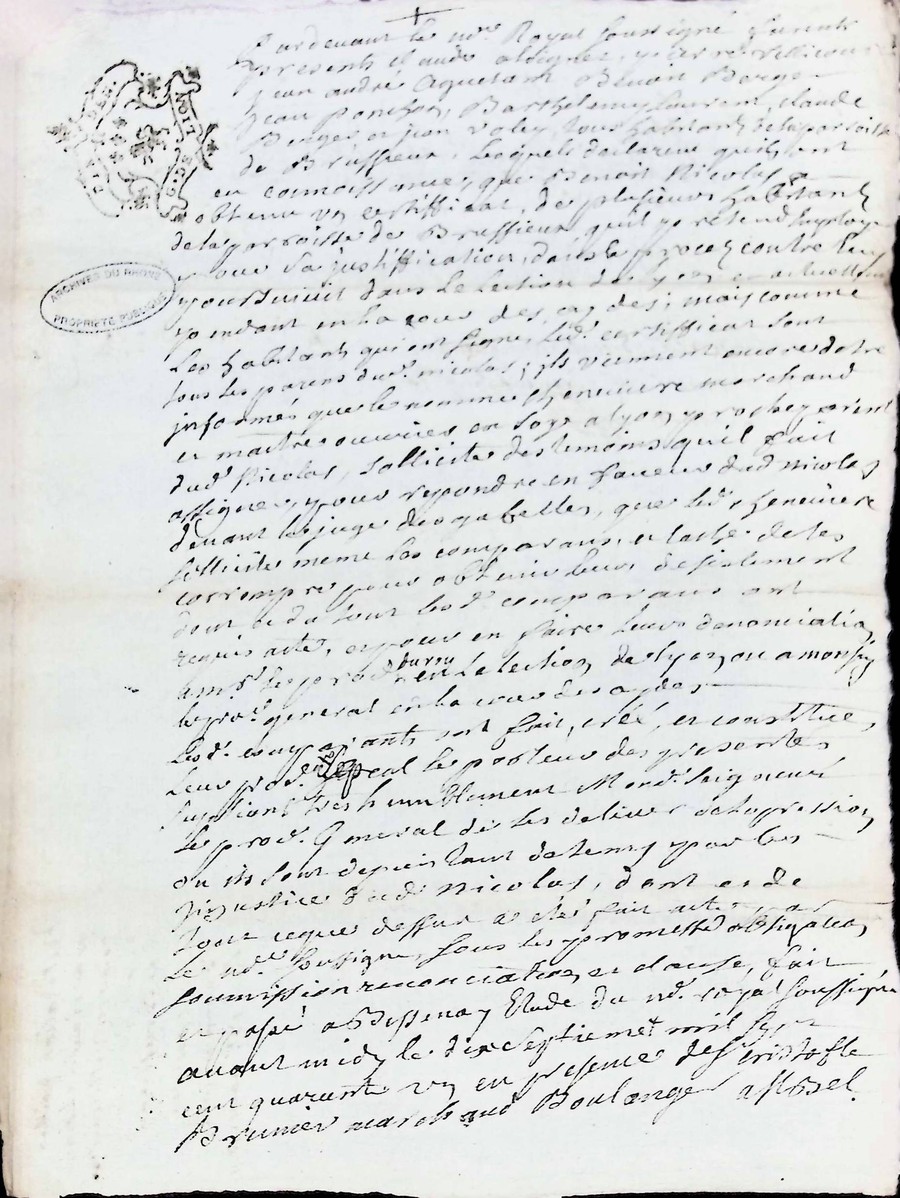 Pardevant le no.re Royal soussigné furent
presents Claude alligner, pierre Vellicour
Jean andré aquetant Benoit Berger
Jean poncton, Barthelemy laurent, claude
Berger et jean Voley tous habitants de la paroisse
de Brussieux, lesquels declarent quils ont
en connoissance, que Benoit Nicolas a
obtenu un certifficat, de plusieurs habitants
de la parroisse de Brussieux quil pretend employer
pour sa justiffication, dans le procez contre luy
poursuivit dans lelection de lyon et actuellem.
pendant en la cour des aydes; mais comme
les habitants qui ont signé led. certifficat sont
tous les parens dud. nicolas; ils viennent encore detre
informés que le nommé cheneviere marchand
et maitre ouvrier en soye a lyon proche parent
dud. Nicolas, sollicite des temoins quil fait
assigner, pour repondre en faveur dud nicolas
devant le juge des gabelles, que led. cheneviere
sollicite meme les comparans et tache de les
corrompre pour obtenir leurs desistement
dont et du tout les d. comparans ont
requis acte, et pour en faire leurs denonciation
a m.r le proc.r du roy en lelection de lyon ou a monsieur
le pro.r general en la cour des aydes
les d. comparants ont fait, créé, et constitué
leur proc. special le porteur des presentes
supliant tres humblement Mond. seigneur
le proc.r General de les delivrer de lopression
ou ils sont depuis tant de tems par les
injustice dud nicolas, dont et de
tout ce que dessus a été fait acte par
le no.re soussigné, sous les promesse obligation
soumission renonciation et clause, fait
et passé a Bessenay Etude du no.re royal soussigné
avant midy le dix septieme mil sept
cent quarante un en presence de s.r cristofle
Brunier marchand Boulanger
ARCHIVES DU RHONE
PROPRIÉTÉ PUBLIQUE